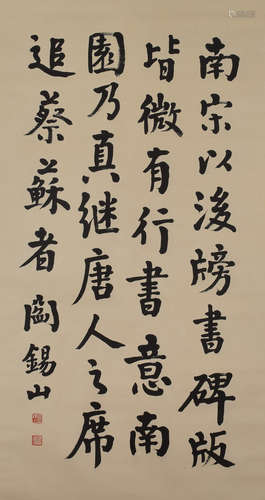 南宋以後牓書碑版
皆微有行書意南
園乃真継唐人之席
追蔡蘇者 閻錫山